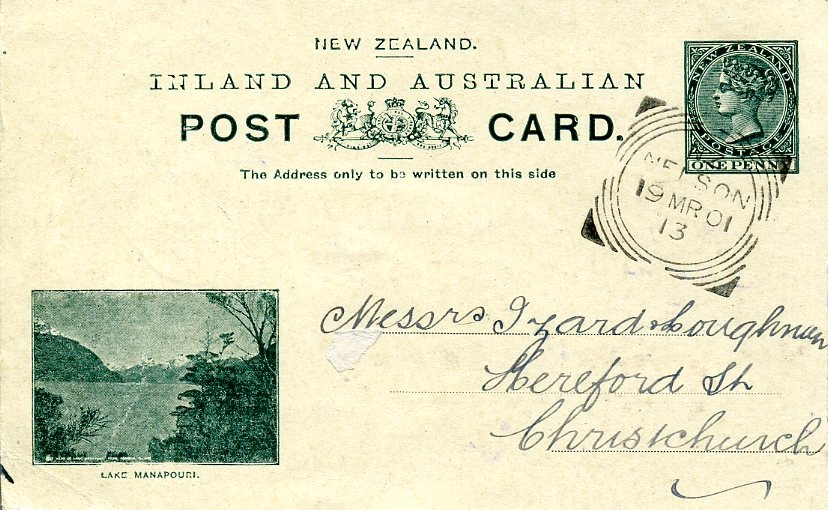 NEW ZEALAND.
INLAND AND AUSTRALIAN
POST CARD.
The Address only to be written on this side
NEW ZEALAND
POSTAGE
ONE PENNY
NELSON
19 MR 01
13
Messrs Izard & Loughnan
Hereford St
Christchurch
LAKE MANAPOURI.